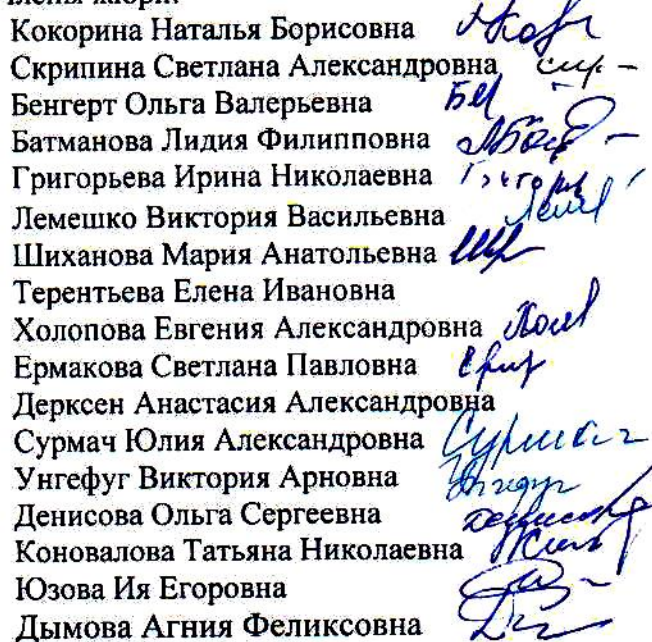 Кокорина Наталья Борисовна
Скрипина Светлана Александровна
Бенгерт Ольга Валерьевна
Батманова Лидия Филипповна
Григорьева Ирина Николаевна
Лемешко Виктория Васильевна
Шиханова Мария Анатольевна
Терентьева Елена Ивановна
Холопова Евгения Александровна
Ермакова Светлана Павловна
Дерксен Анастасия Александровна
Сурмач Юлия Александровна
Унгефуг Виктория Арновна
Денисова Ольга Сергеевна
Коновалова Татьяна Николаевна
Юзова Ия Егоровна
Дымова Агния Феликсовна